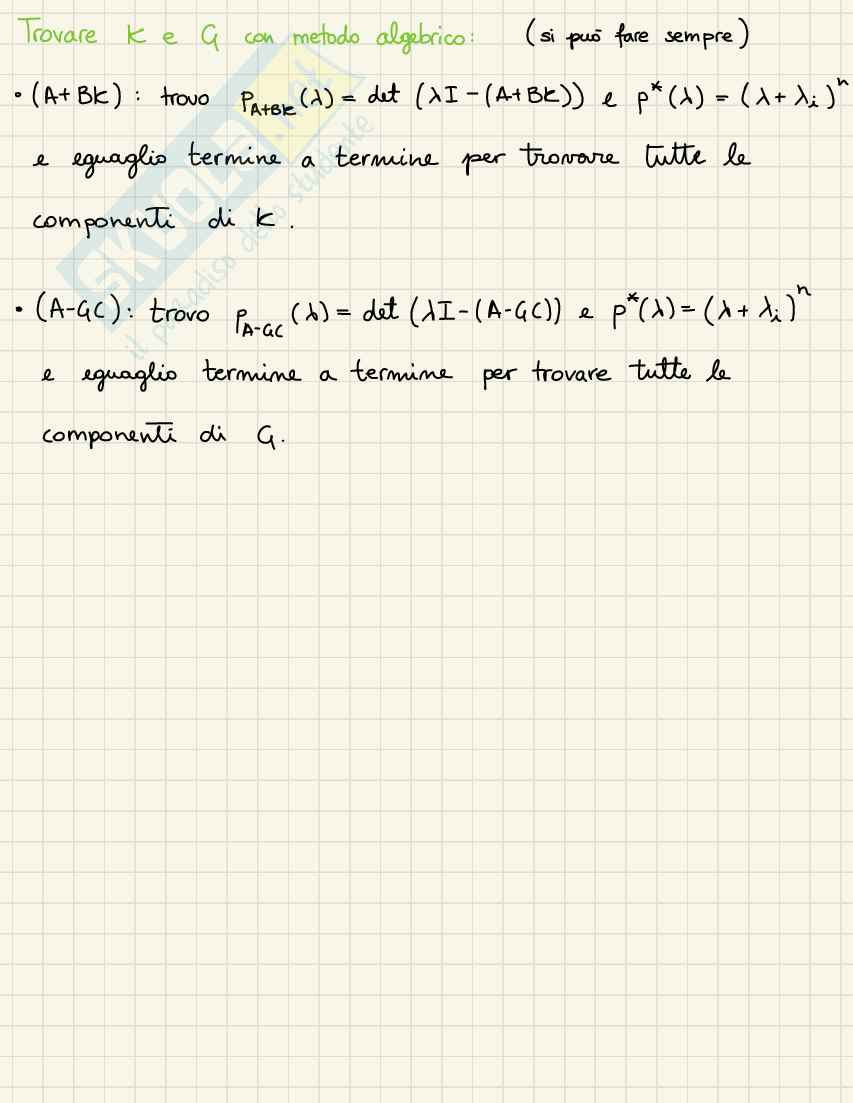 Trovare K e G con metodo algebrico: (si può fare sempre)
• (A+BK): trovo P_{A+BK}(λ) = det (λI-(A+BK)) e p*(λ) = (λ+λ_i)^n
e eguaglio termine a termine per trovare tutte le
componenti di K.
• (A-GC): trovo P_{A-GC}(λ) = det (λI-(A-GC)) e p*(λ) = (λ+λ_i)^n
e eguaglio termine a termine per trovare tutte le
componenti di G.
SKUOLA.net
il paradiso dello studente